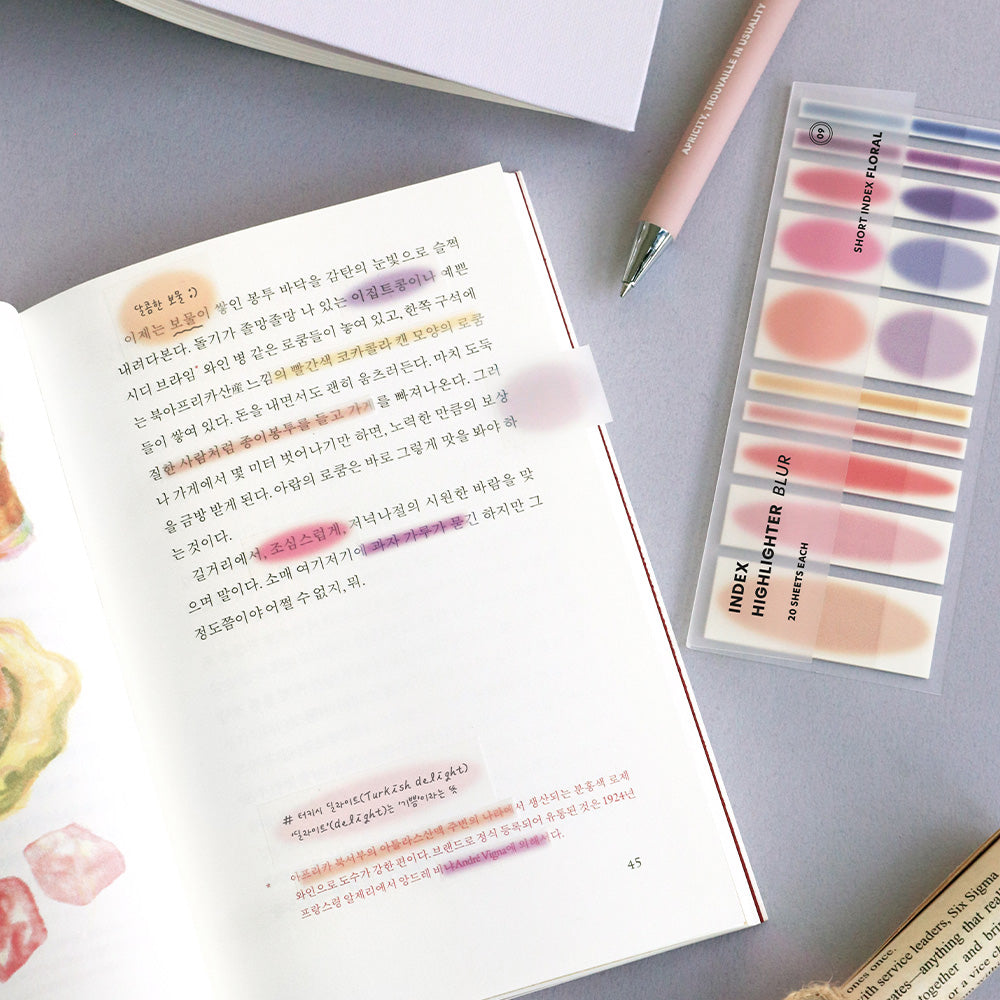 달콤한 보물 :)
이제는 보물이 쌓인 봉투 바닥을 감탄의 눈빛으로 슬쩍
내려다본다. 돌기가 졸망졸망 나 있는 이집트콩이나 예쁜
시디 브라임* 와인 병 같은 로쿰들이 놓여 있고, 한쪽 구석에
는 북아프리카산産 느낌의 빨간색 코카콜라 캔 모양의 로쿰
들이 쌓여 있다. 돈을 내면서도 괜히 움츠러든다. 마치 도둑
질한 사람처럼 종이봉투를 들고 가게를 빠져나온다. 그러
나 가게에서 몇 미터 벗어나기만 하면, 노력한 만큼의 보상
을 금방 받게 된다. 아랍의 로쿰은 바로 그렇게 맛을 봐야 하
는 것이다.
길거리에서, 조심스럽게, 저녁나절의 시원한 바람을 맞
으며 말이다. 소매 여기저기에 과자 가루가 묻긴 하지만 그
정도쯤이야 어쩔 수 없지, 뭐.
# 터키시 딜라이트(Turkish delight)
'딜라이트'(delight)는 '기쁨'이라는 뜻
* 아프리카 북서부의 아틀라스산맥 주변의 나라에서 생산되는 분홍색 로제
와인으로 도수가 강한 편이다. 브랜드로 정식 등록되어 유통된 것은 1924년
프랑스령 알제리에서 앙드레 비냐André Vigna에 의해서다.
45
APRICITY, TROUVAILLE IN USUALITY
09
SHORT INDEX FLORAL
INDEX
HIGHLIGHTER BLUR
20 SHEETS EACH
ones once.
with service leaders, Six Sigma
ates—anything that real
together and brin
or a vice c